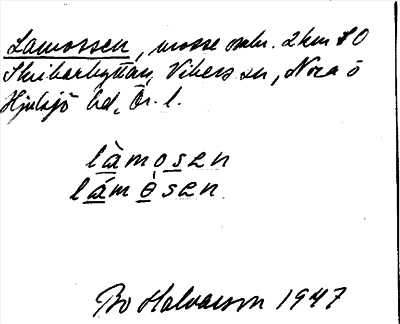 Lamossen, mosse omr. 2 km SO
Skribarbyttan, Vikers sn, Nora o
Hjulsjö bd, Ör. l.
làmosen
lámòsen
Bo Halvarson 1947